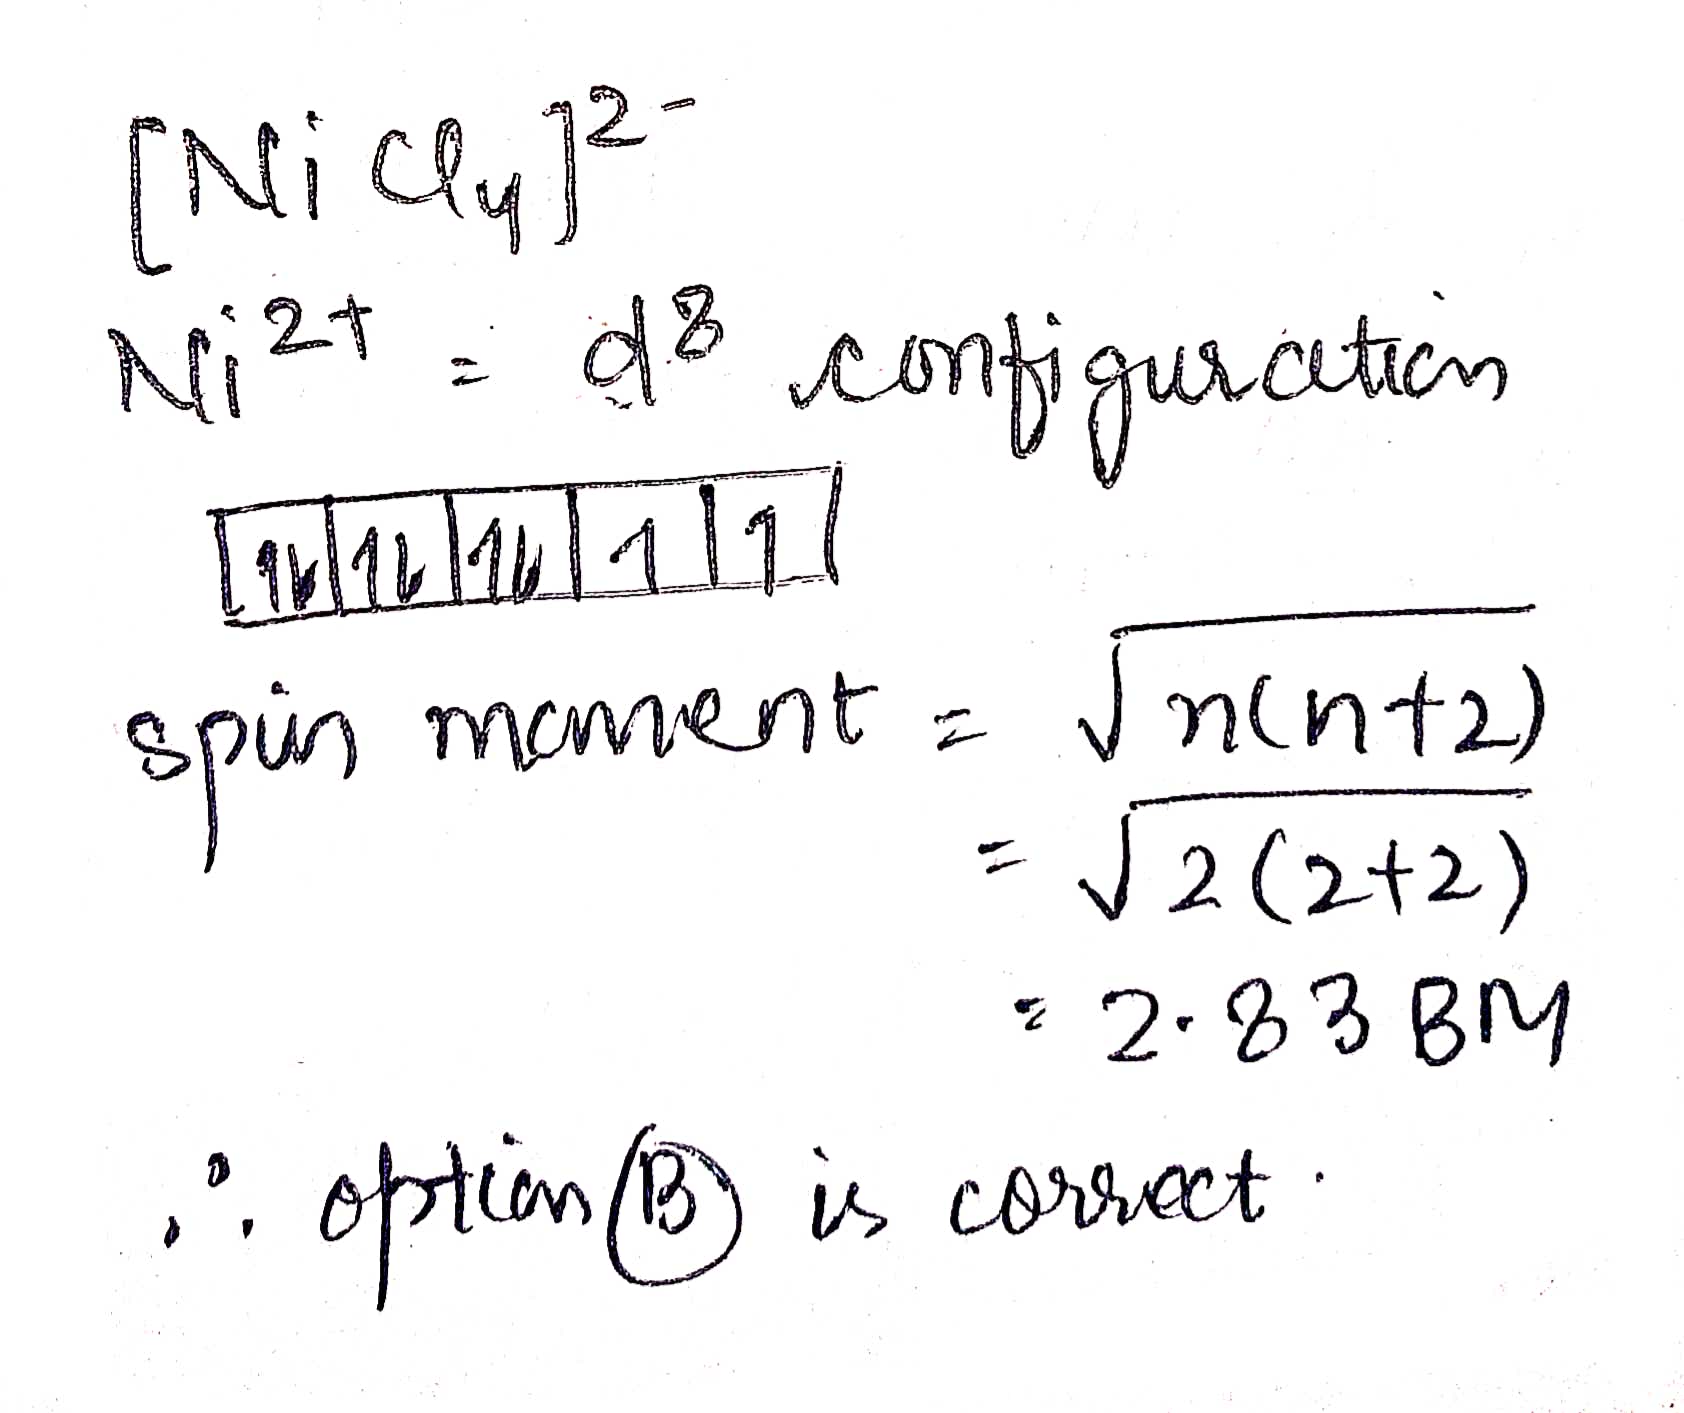 [NiCl₄]²⁻
Ni²⁺ = d⁸ configuration
|1↿⇂|1↿⇂|1↿⇂|1|1|
spin moment = √n(n+2)
= √2(2+2)
= 2.83 BM
∴ option Ⓑ is correct.